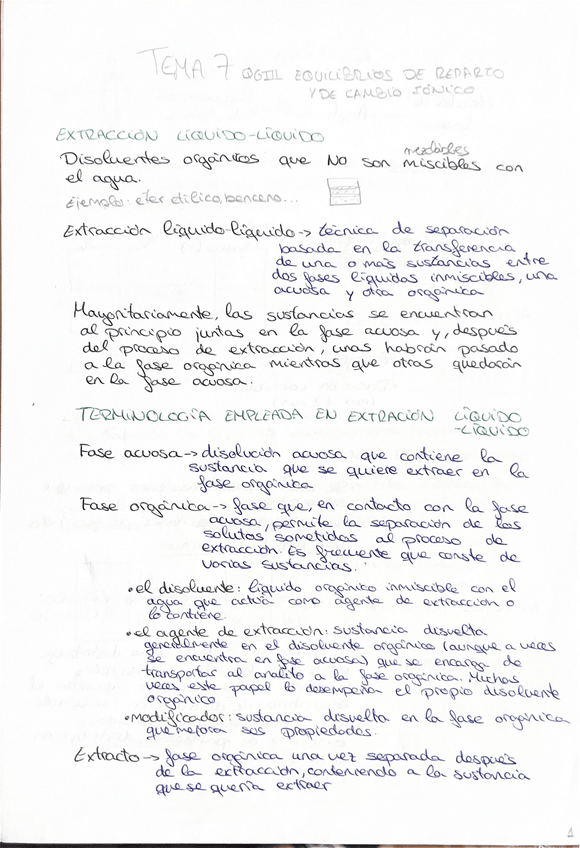 TEMA 7 QGIII EQUILIBRIOS DE REPARTO
Y DE CAMBIO IÓNICO
EXTRACCIÓN LÍQUIDO-LÍQUIDO
mezclables
Disolventes orgánicos que NO son miscibles con
el agua.
Ejemplo: eter etílico, benceno...
Extracción líquido-líquido → técnica de separación
basada en la transferencia
de una o más sustancias entre
dos fases líquidas inmiscibles, una
acuosa y otra orgánica
Mayoritariamente, las sustancias se encuentran
al principio juntas en la fase acuosa y, después
del proceso de extracción, unas habrán pasado
a la fase orgánica mientras que otras quedarán
en la fase acuosa.
TERMINOLOGÍA EMPLEADA EN EXTRACIÓN LÍQUIDO
-LÍQUIDO
Fase acuosa → disolución acuosa que contiene la
sustancia que se quiere extraer en la
fase orgánica
Fase orgánica → fase que, en contacto con la fase
acuosa, permite la separación de los
solutos sometidos al proceso de
extracción. Es frecuente que conste de
varias sustancias.
• el disolvente: líquido orgánico inmiscible con el
agua que actúa como agente de extracción o
lo contiene.
• el agente de extracción: sustancia disuelta
generalmente en el disolvente orgánico (aunque a veces
se encuentra en fase acuosa) que se encarga de
transportar al analito a la fase orgánica. Muchas
veces este papel lo desempeña el propio disolvente
orgánico
• modificador: sustancia disuelta en la fase orgánica
que mejora sus propiedades.
Extracto → fase orgánica una vez separada después
de la extracción, conteniendo a la sustancia
que se quería extraer
1